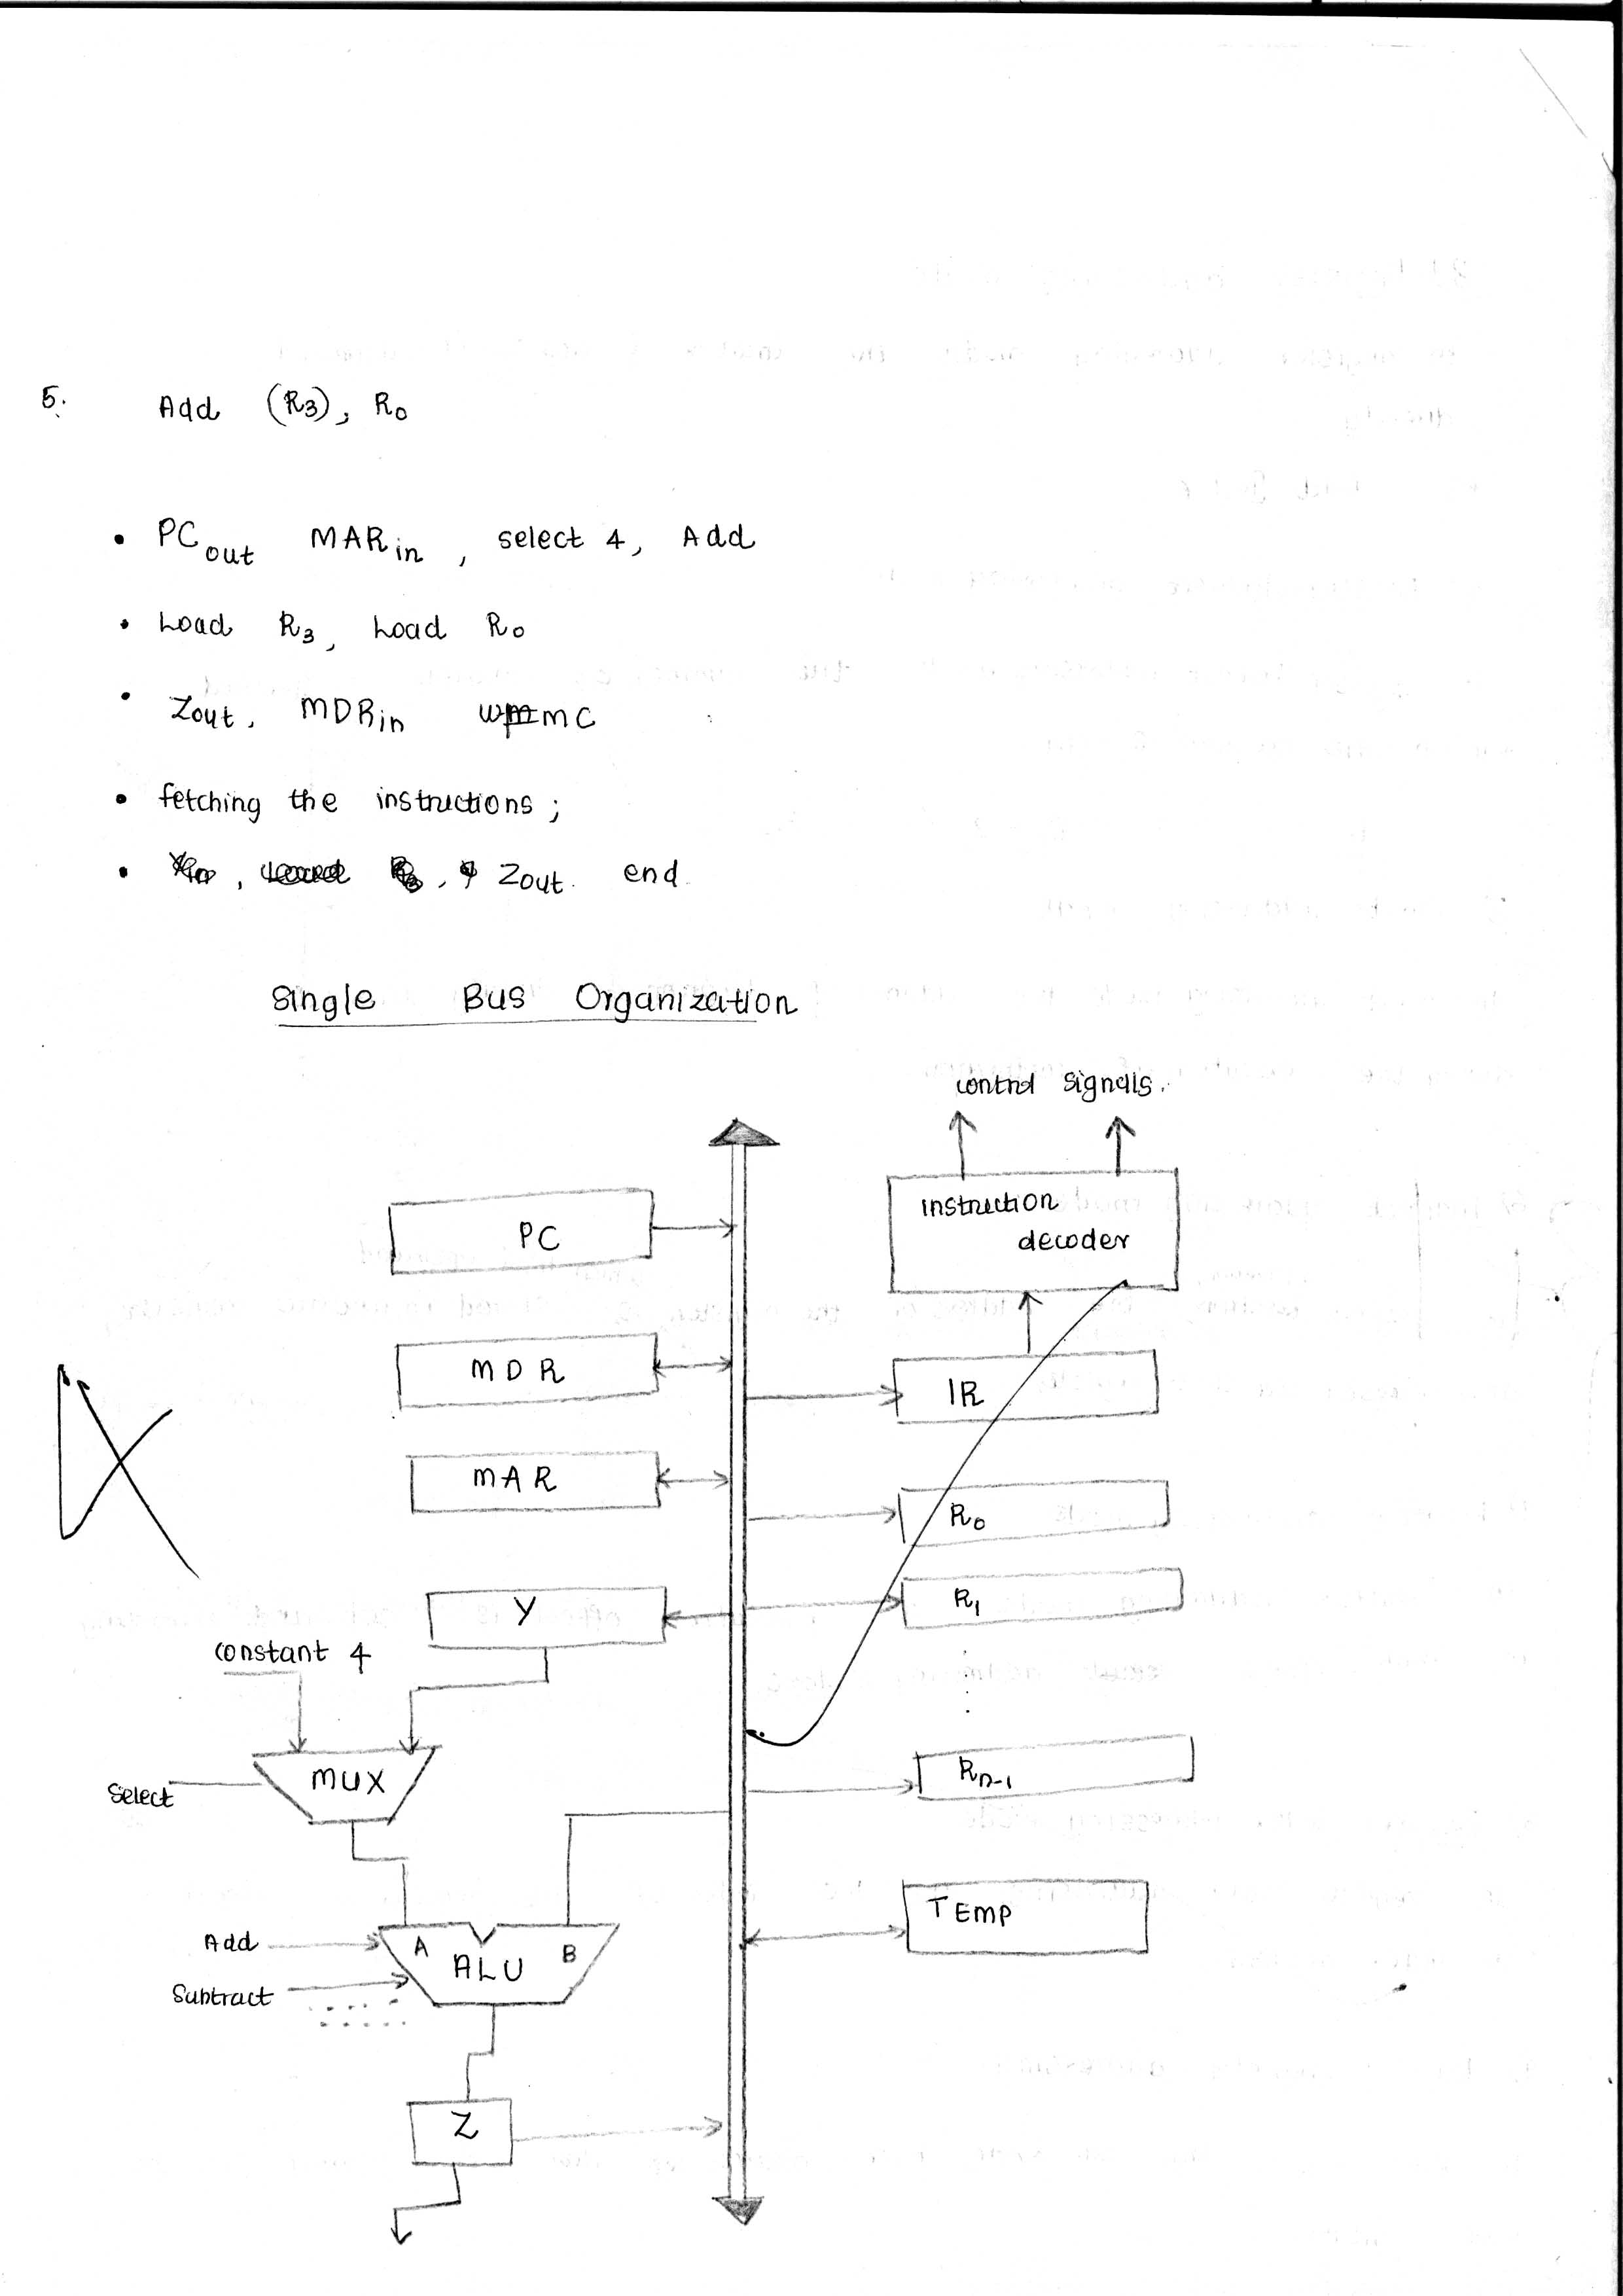 5. Add (R3), R0
• PCout MARin, select 4, Add
• Load R3, Load R0
• Zout, MDRin WMMC
• fetching the instructions;
• Zout. end.
Single Bus Organization
control signals.
instruction
decoder
PC
MDR
IR
MAR
R0
Y
R1
constant 4
MUX
Rn-1
Select
TEMP
Add
A
B
ALU
Subtract
Z